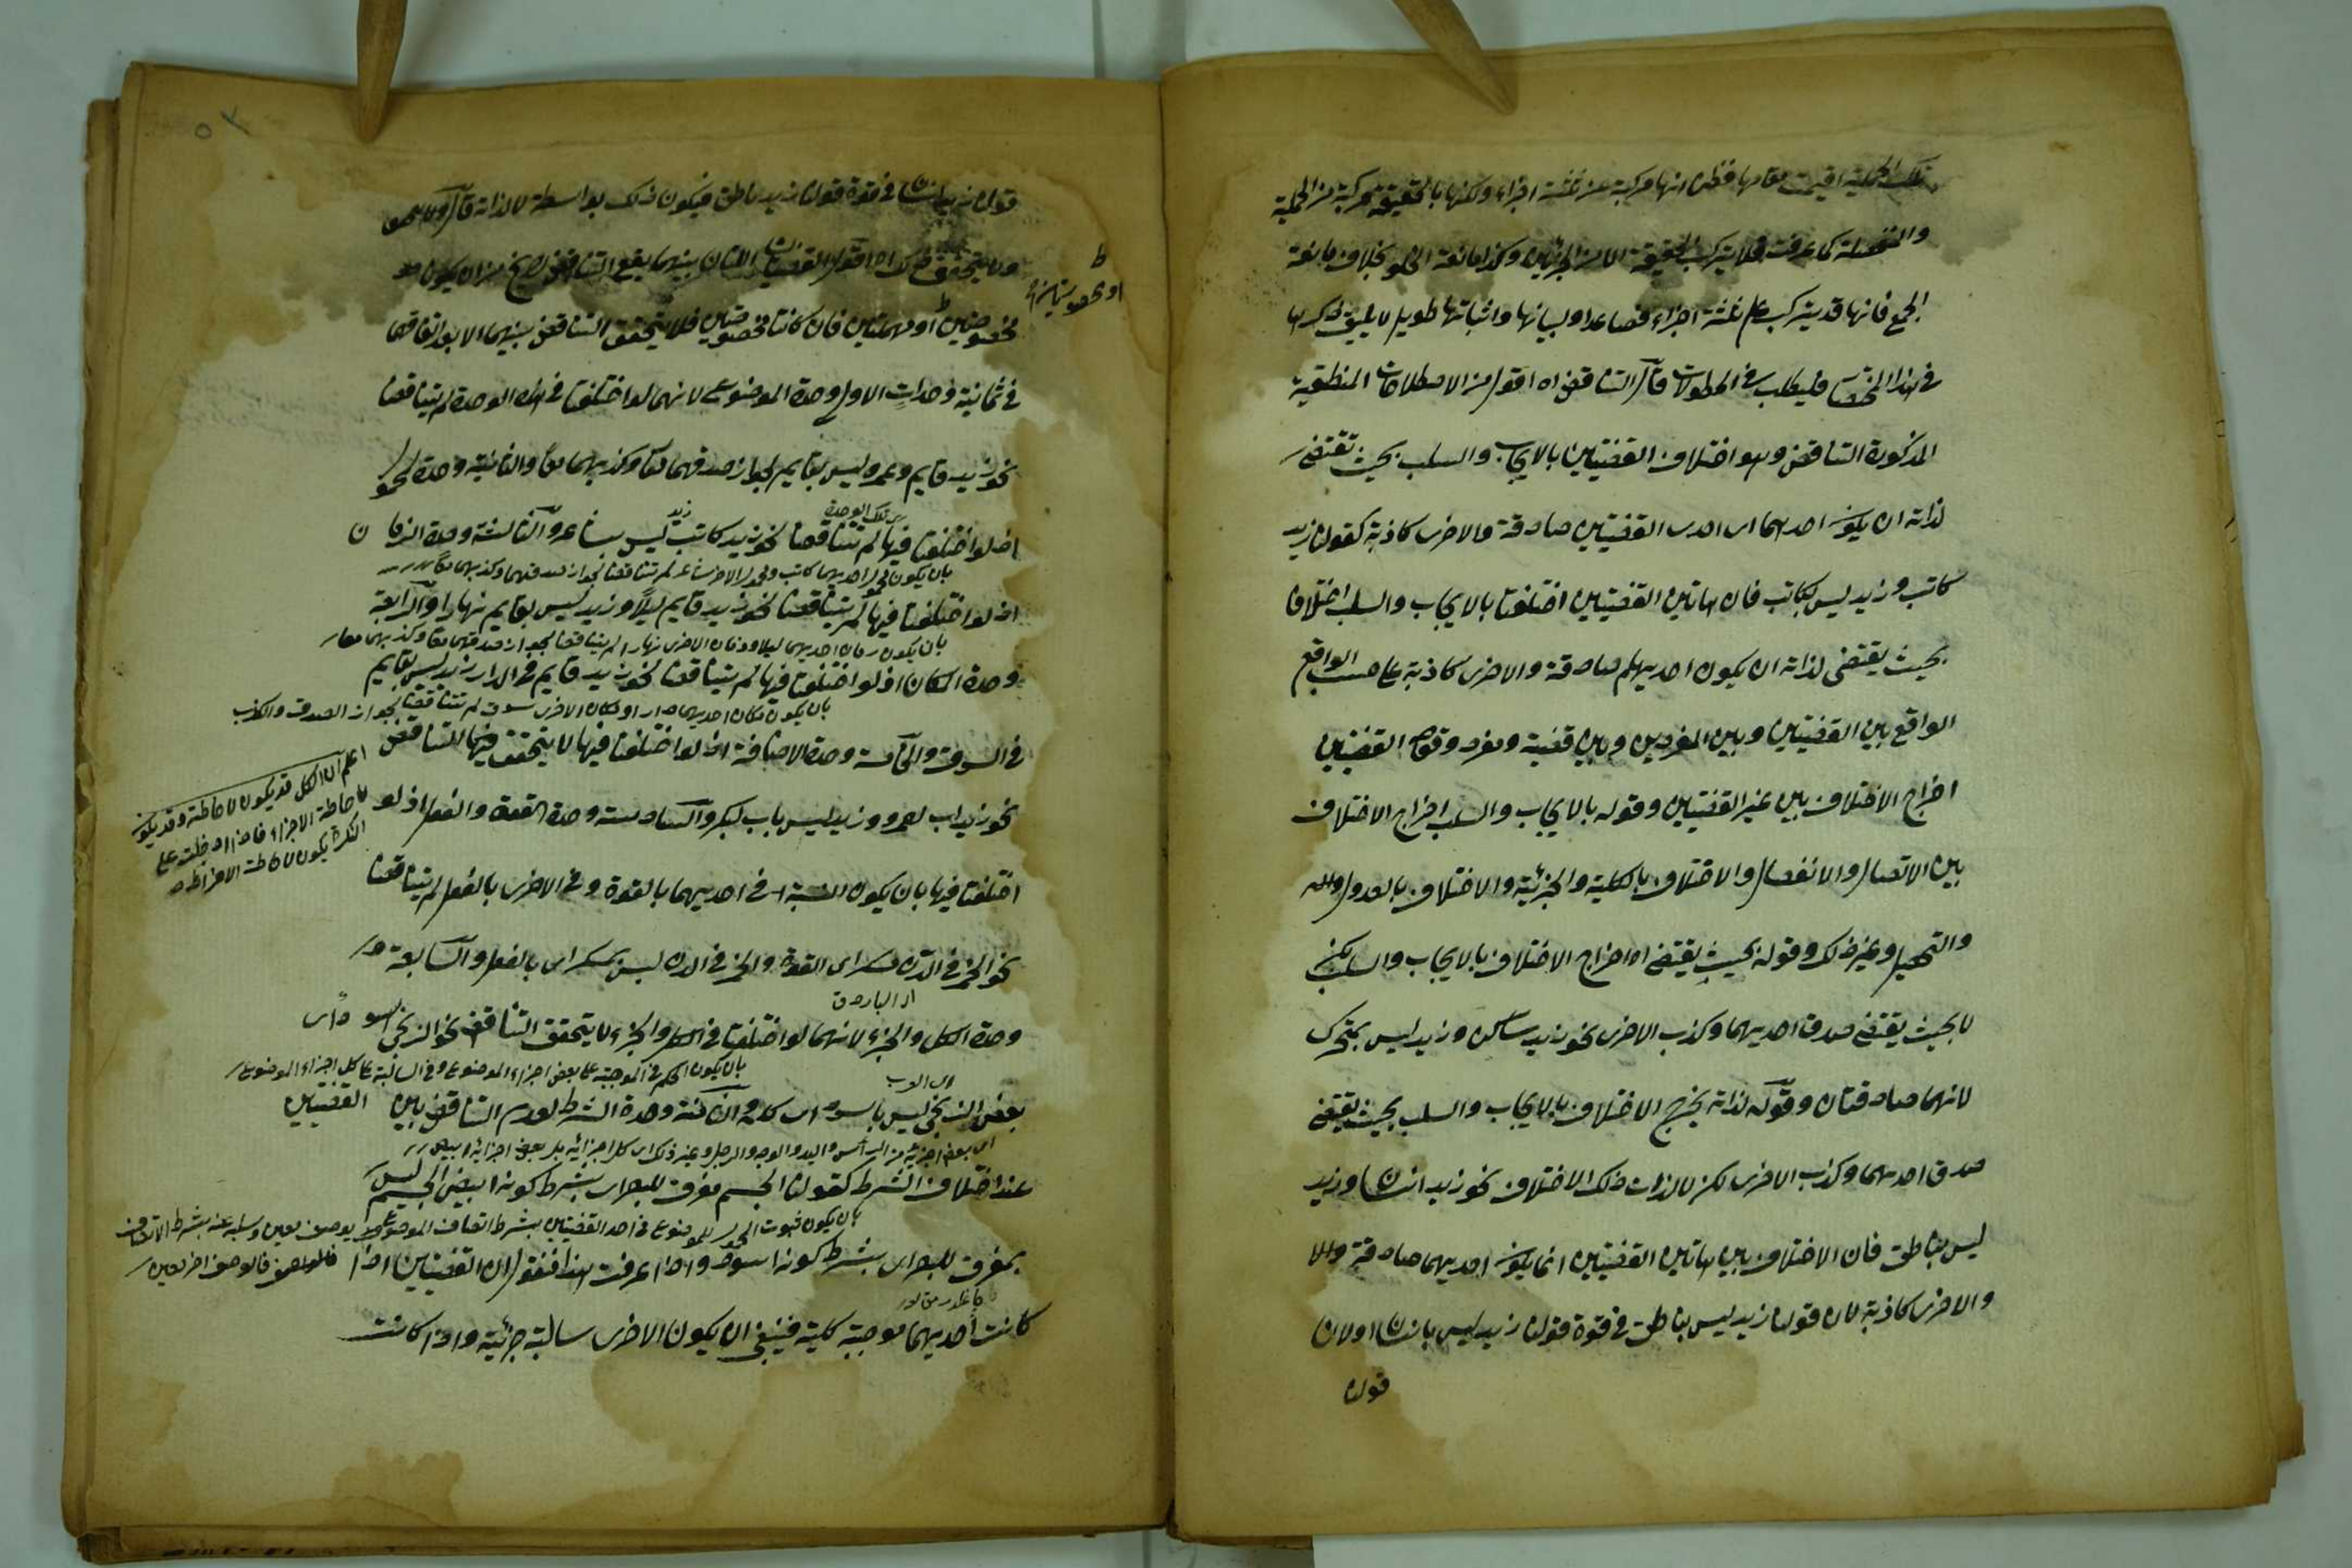 تلك الحملية اقيمت مقامها فظن انها مركبة من ثلثة اجزاء ولكنها بالحقيقة مركبة من الحملية
والمنفصلة كما عرفت فلا يتركب الحقيقة الا من الجزئين وكذا مانعة الخلو بخلاف مانعة
الجمع فانها قد يتركب على ثلثة اجزاء فصاعدا وبيانها واثباتها طويل لا يليق ذكرها
في هذا المختصر فليطلب في المطولات قال التناقض اه اقول من الاصطلاحات المنطقية
المذكورة التناقض وهو اختلاف القضيتين بالايجاب والسلب بحيث تقتضي
لذاته ان يكون احديهما اى احدى القضيتين صادقة والاخرى كاذبة كقولنا زيد
كاتب وزيد ليس بكاتب فان هاتين القضيتين اختلفتا بالايجاب والسلب اختلافا
بحيث يقتضى لذاته ان يكون احديهما صادقة والاخرى كاذبة على حسب الواقع
الواقع بين القضيتين وبين المفردين وبين قضية ومفرد وقوله القضيتين
اخراج الاختلاف بين غير القضيتين وقوله بالايجاب والسلب اخراج الاختلاف
بين الاتصال والانفصال والاختلاف بالكلية والجزئية والاختلاف بالعدول
والتحصيل وغير ذلك وقوله بحيث يقتضي اه اخراج الاختلاف بالايجاب والسلب لكن
لا بحيث يقتضي صدق احديهما وكذب الاخرى نحو زيد ساكن وزيد ليس بمتحرك
لانهما صادقتان وقوله لذاته يخرج الاختلاف بالايجاب والسلب بحيث يقتضي
صدق احديهما وكذب الاخرى لكن لا لذات ذلك الاختلاف نحو زيد انسان وزيد
ليس بناطق فان الاختلاف بين هاتين القضيتين انما يكون احديهما صادقة
والاخرى كاذبة لان قولنا زيد ليس بناطق في قوة قولنا زيد ليس بانسان او لان
قولنا
قولنا زيد انسان في قوة قولنا زيد ناطق فيكون ذلك بواسطة لا لذاته قال
ولا يتحقق ذلك اه اقول القضيتان اللتان بينهما يقع التناقض لا يخ من ان يكون
مخصوصتين او مهملتين فان كانتا مخصوصتين فلا يتحقق التناقض بينهما الا بعد اتفاقهما
في ثمانية وحدات الاول وحدة الموضوع لانهما لو اختلفتا في هذه الوحدة لم يتناقضا
نحو زيد قايم وعمرو ليس بقايم لجواز صدقهما معا وكذبهما معا والثانية وحدة المحمول
اذ لو اختلفتا فيها لم تتناقضا نحو زيد كاتب زيد ليس بشاعر والثالثة وحدة الزمان
بان يكون محمول احديهما كاتب ومحمول الاخرى شاعر لم تتناقضا لجواز صدقهما وكذبهما معا
اذ لو اختلفتا فيها لم يتناقضا نحو زيد قايم ليلا وزيد ليس بقايم نهارا والرابعة
بان يكون زمان احديهما ليلا وزمان الاخرى نهارا لم يتناقضا لجواز صدقهما معا وكذبهما معا
وحدة المكان اذ لو اختلفتا فيها لم يتناقضا نحو زيد قايم في الدار زيد ليس بقايم
بان يكون مكان احديهما دار او مكان الاخرى سوق لم تتناقضا لجواز الصدق والكذب
في السوق والخامسة وحدة الاضافة اذ لو اختلفتا فيها لا يتحقق فيها التناقض
اعلم ان الكل قد يكون لاحاطة وقد يكون
لاحاطة الاجزاء فاذا دخلت على
النكرة يكون لاحاطة الافراد
نحو زيد اب لعمرو وزيد ليس باب لبكر والسادسة وحدة القوة والفعل اذ لو
اختلفتا فيها بان يكون النسبة في احديهما بالقوة وفي الاخرى بالفعل لم يتناقضا
نحو الخمر في الدن مسكر اى القوة والخمر في الدن ليس بمسكر اى بالفعل والسابعة
وحدة الكل والجزء لانهما لو اختلفتا في الكل والجزء لا يتحقق التناقض نحو الزنجي اسود اى
بان يكون الحكم في الموجبة على بعض اجزاء الموضوع وفي السالبة على كل اجزاء الموضوع
بعض الزنجي ليس باسود اى كله والثامنة وحدة الشرط لعدم التناقض بين القضيتين
اى بعض اجزائه من الرأس واليد والوجه والرجل وغير ذلك اى كل اجزائه بل بعض اجزائه ابيض
عند اختلاف الشرط كقولنا الجسم مفرق للبصر اى بشرط كونه ابيض الجسم ليس
بان يكون ثبوت المحمول للموضوع في احد القضيتين بشرط اتصاف الموضوع بوصف معين وسلبه عنه بشرط الاتصاف
بمفرق للبصر اى بشرط كونه اسود واذا عرفت هذا فنقول ان القضيتين اذا
كانت احديهما موجبة كلية فينبغي ان يكون الاخرى سالبة جزئية واذا كانت